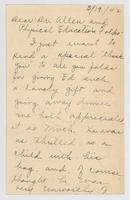 3/19/42
Dear Dr. Allen and
Physical Education Folks:
I just want to
send a special thank
you to all you folks
for giving Ed such
a lovely gift and
going away dinner.
We both appreciated
it so much. He was
as thrilled as a
child with his
bag and of course
thought he was
very unworthy of